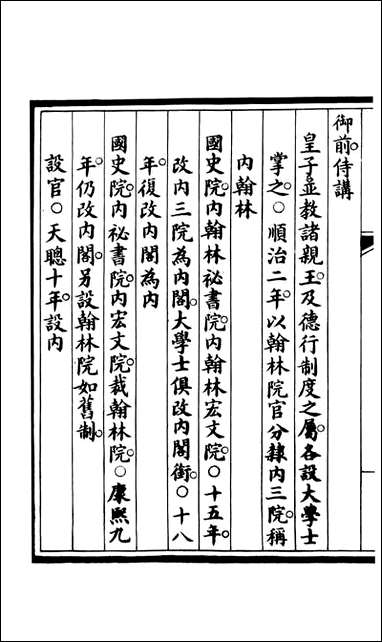 御前侍講
皇子並教諸親王及德行制度之屬各設大學士
掌之○順治二年以翰林院官分隸內三院稱
內翰林
國史院內翰林祕書院內翰林宏文院○十五年
改內三院為內閣大學士俱改內閣銜○十八
年復改內閣為內
國史院內祕書院內宏文院裁翰林院○康熙九
年仍改內閣另設翰林院如舊制
設官○天聰十年設內